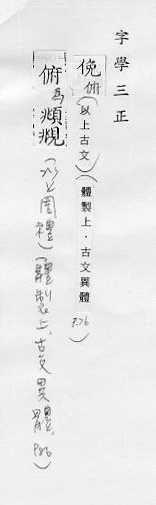 字學三正
俛俯(以上古文)(體製上.古文異體 P.26)
俯為頫覜(以上周禮)(體製上、古文異體、P26)